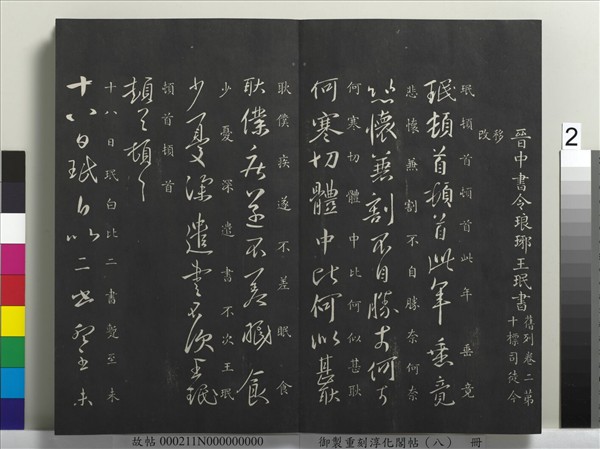 晉中書令琅琊王珉書
舊列卷二第
十標司徒令
移
改
珉頓首頓首此年垂竟
珉頓首頓首此年垂竟
悲懷兼割不自勝奈何奈
悲懷兼割不自勝奈何奈
何寒切體中比何似甚耿
何寒切體中比何似甚耿
耿僕疾遂不差眠食
耿僕疾遂不差眠食
少憂深遣書不次王珉
少憂深遣書不次王珉
頓首頓首
頓首頓首
十八日珉白比二書至未
十八日珉白比二書至未
2
故帖 000211N000000000
御製重刻淳化閣帖（八） 冊